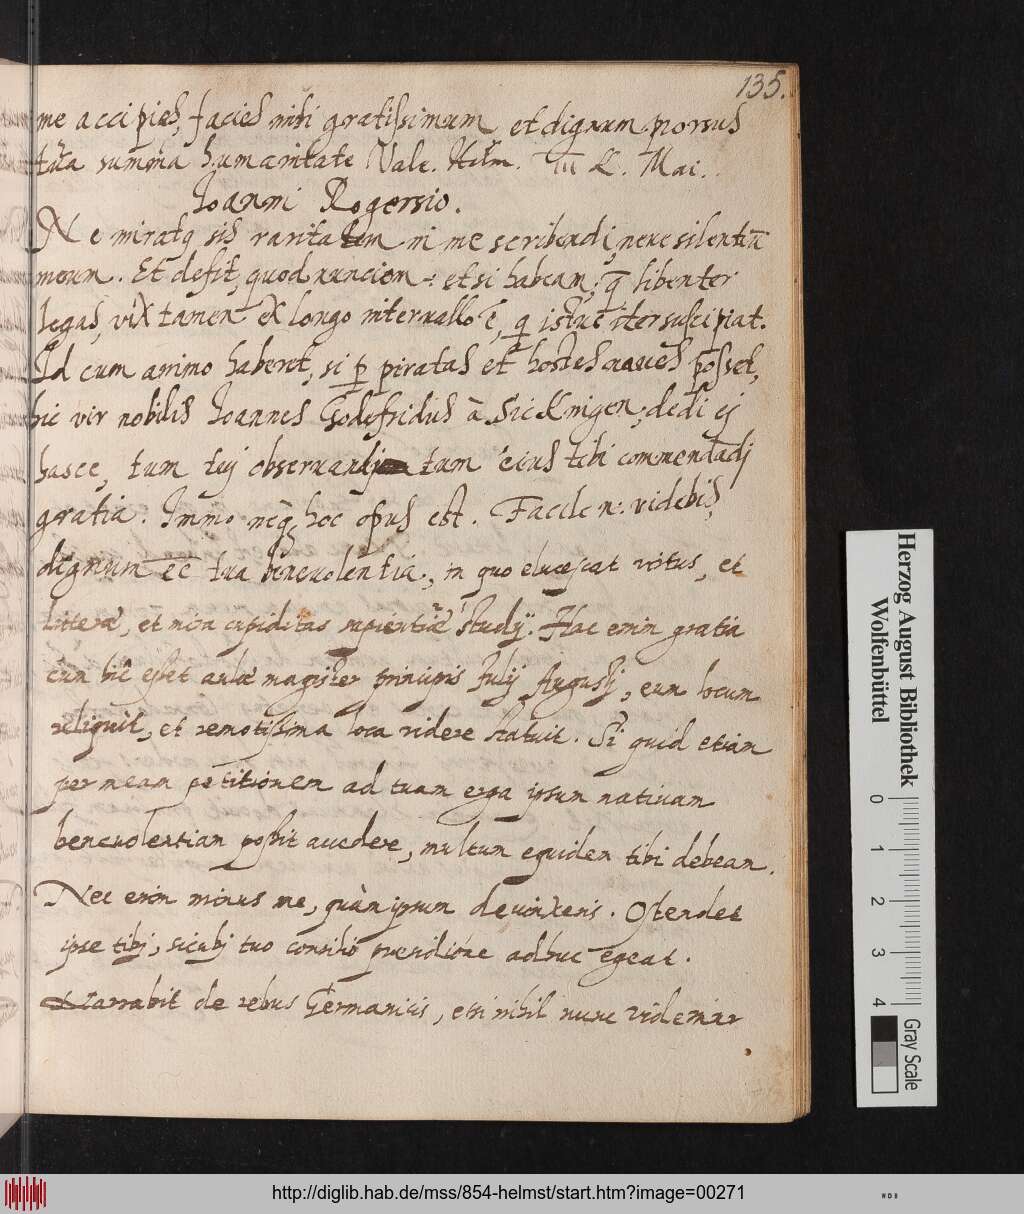 135.
me accipies, facies mihi gratissimum et dignum porsus
tua summa humanitate Vale. Helm. III K. Mai.
Ioanni Rogersio.
Ne miratq sis raritatem in me scribendi, neve silentiū
meum. Et defit, quod nunciem: etsi habeam, q̄ libenter
legas, vix tamen ex longo intervallo ē, q istuc iter suscipiat.
Id cum animo haberet, si p piratas et hostes naves posset,
hic vir nobilis Ioannes Godefridus à Sickingen, dedi ej
hasce, tum tuj observandj tum ejus tibi commendadj
gratia. Immo neq hoc opus est. Facile n: videbis,
dignum eē tua benevolentia, in quo elucescat virtus, et
litterae, et mira cupiditas sapientiae studij. Hac enim gratia
cum hic esset aulae magister principis Julij Augustj, eum locum
reliquit, et remotissima loca videre statuit. Si quid etiam
per meam petitionem ad tuam erga ipsum nativam
benevolentiam possit accedere, multum equidem tibi debeam.
Nec enim minus me, quàm ipsum devinxeris. Ostendet
ipse tibj, sicubj tuo consilio prendiore adhuc egeat.
Narrabit de rebus Germanicis, etsi nihil nunc videmur
Herzog August Bibliothek
Wolfenbüttel
0 1 2 3 4
Gray Scale
http://diglib.hab.de/mss/854-helmst/start.htm?image=00271